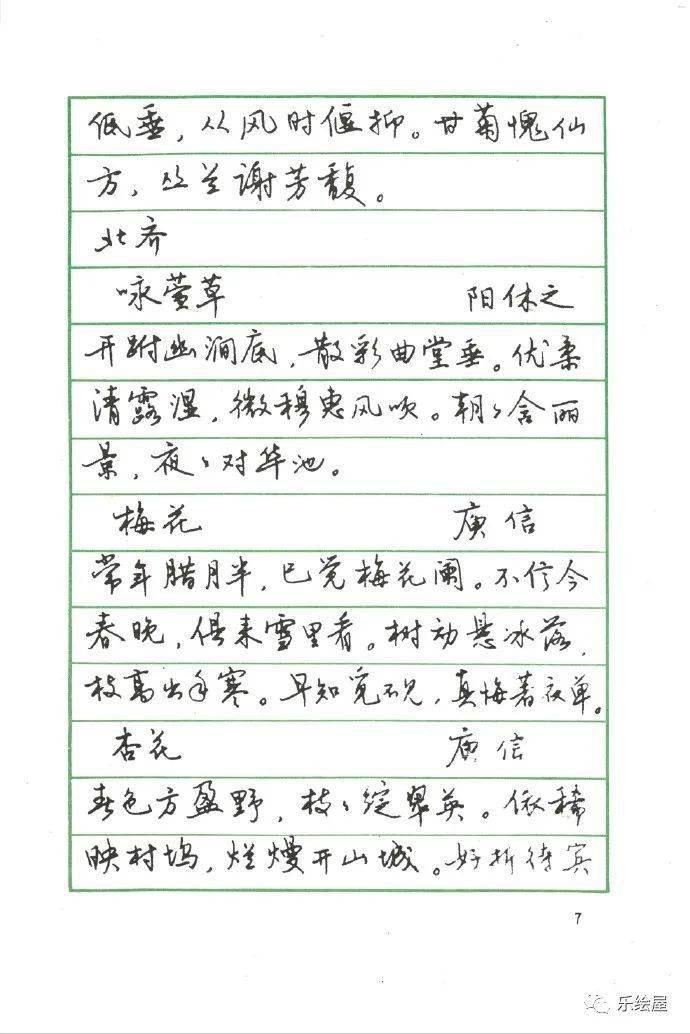 低垂，从风时偃抑。甘菊愧仙
方，丛兰谢芳馥。
北齐
咏萱草 阳休之
开跗幽涧底，散彩曲堂垂。优柔
清露湿，微穆惠风吹。朝々含丽
景，夜々对华池。
梅花 庾信
常年腊月半，已觉梅花阑。不信今
春晚，俱来雪里看。树动悬冰落，
枝高出手寒。早知觅不见，真悔著衣单。
杏花 庾信
春色方盈野，枝々绽翠英。依稀
映村坞，烂熳开山城。好折待宾
7
乐绘屋